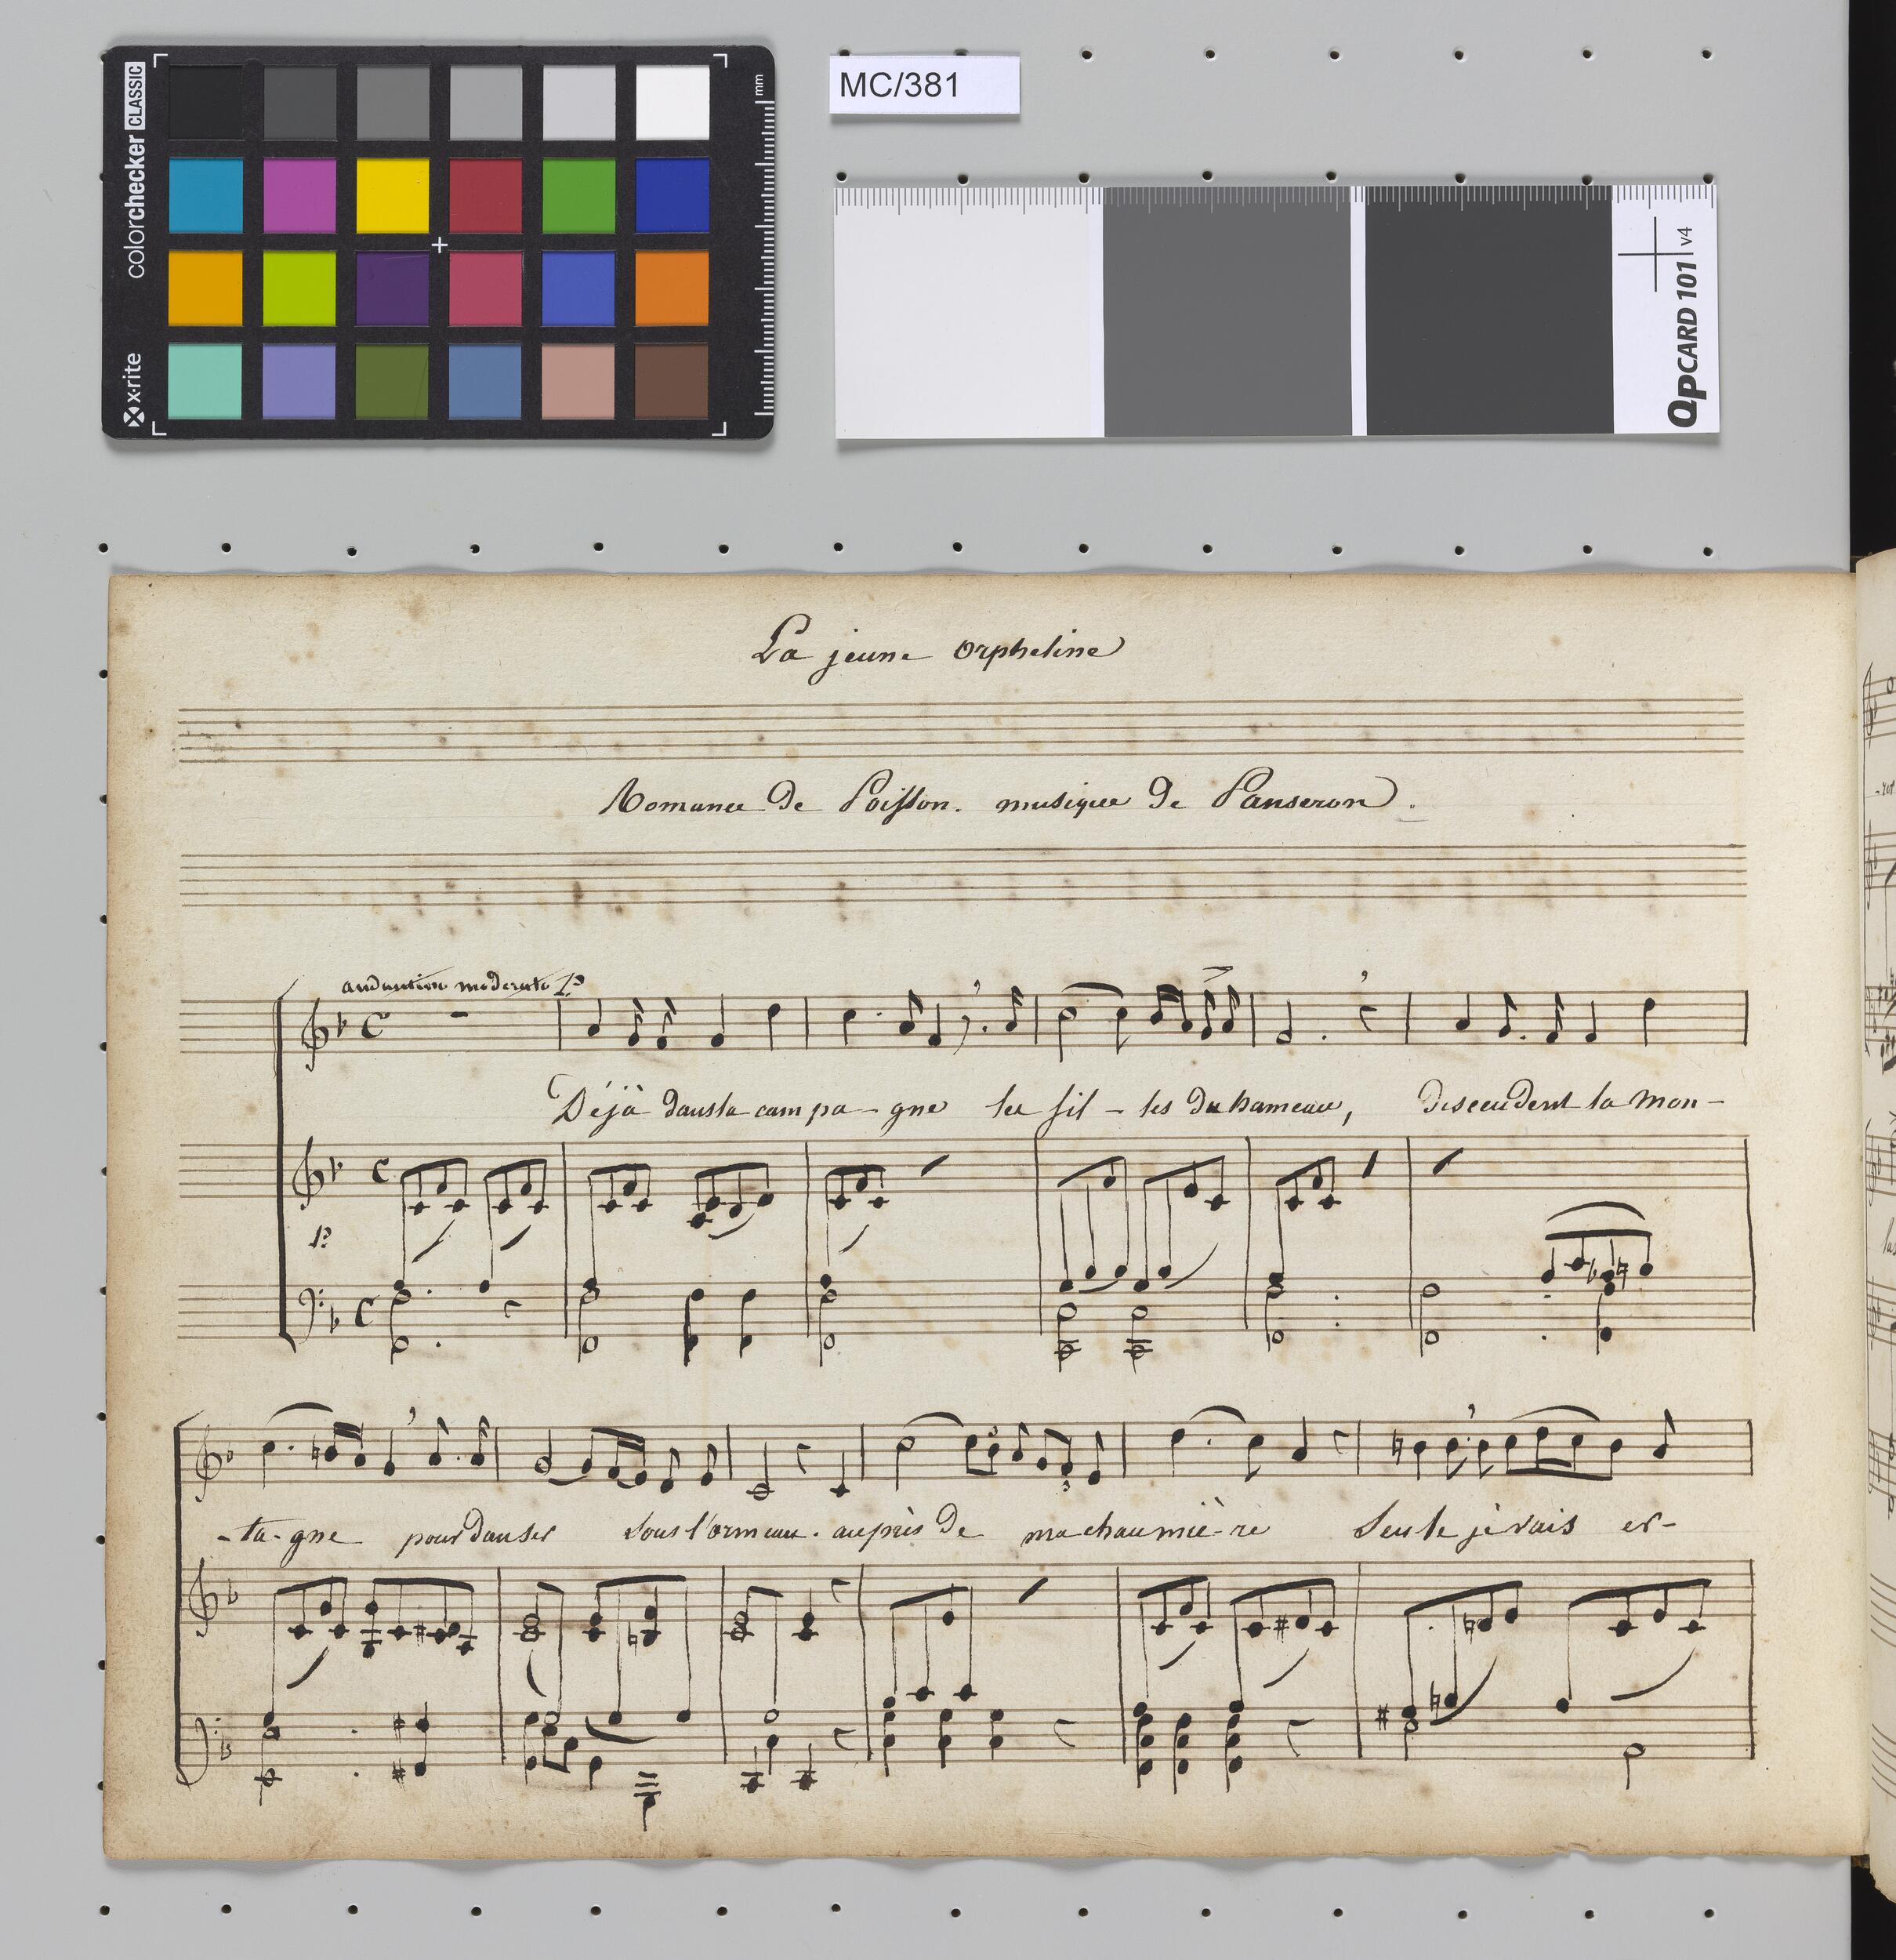 colorchecker CLASSIC
x-rite
mm
MC/381
QPCARD 101 v4
La jeune Orpheline
Romance de Poisson. musique de Panseron.
andantino moderato P
Déjà dans la campa-gne les fil-les du hameau, descendent la mon-
P
-ta-gne pour danser sous l'ormeau. auprès de ma chaumiè-re seule je vais er-